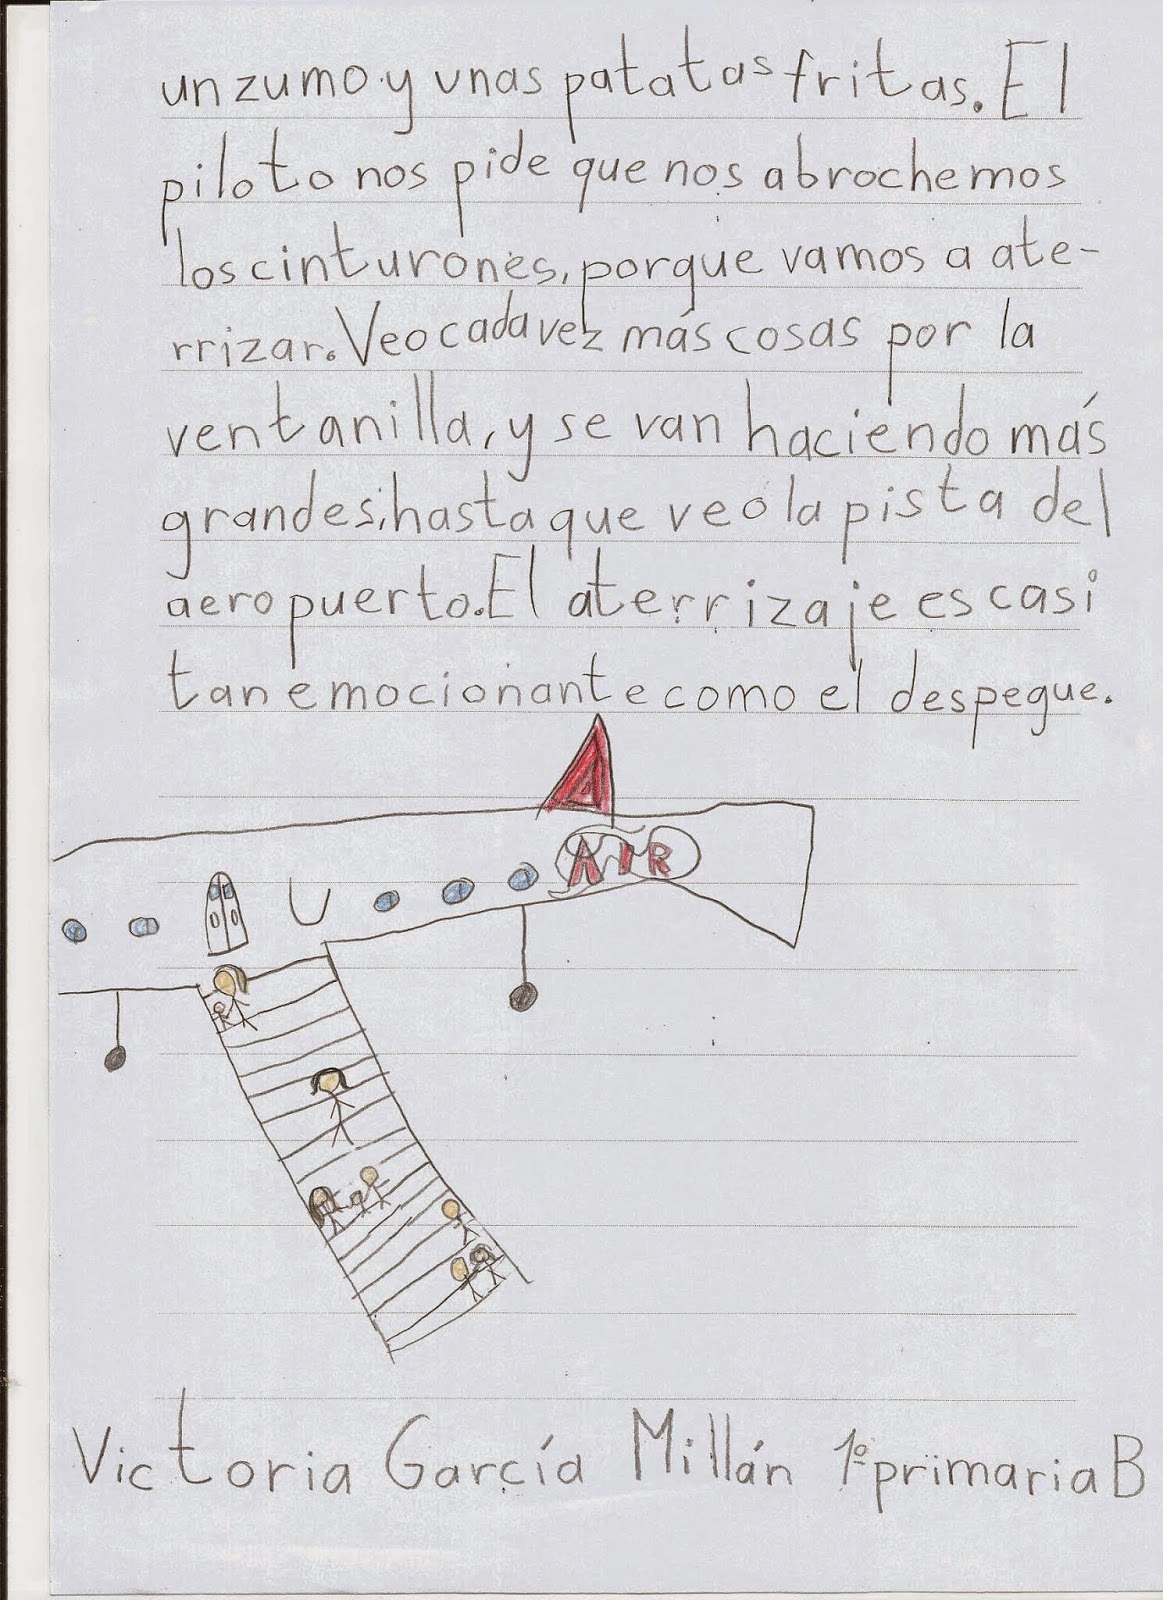 un zumo y unas patatas fritas. El
piloto nos pide que nos abrochemos
los cinturones, porque vamos a ate-
rrizar. Veo cada vez más cosas por la
ventanilla, y se van haciendo más
grandes, hasta que veo la pista del
aeropuerto. El aterrizaje es casi
tan emocionante como el despegue.
AIR
Victoria García Millán 1º primaria B